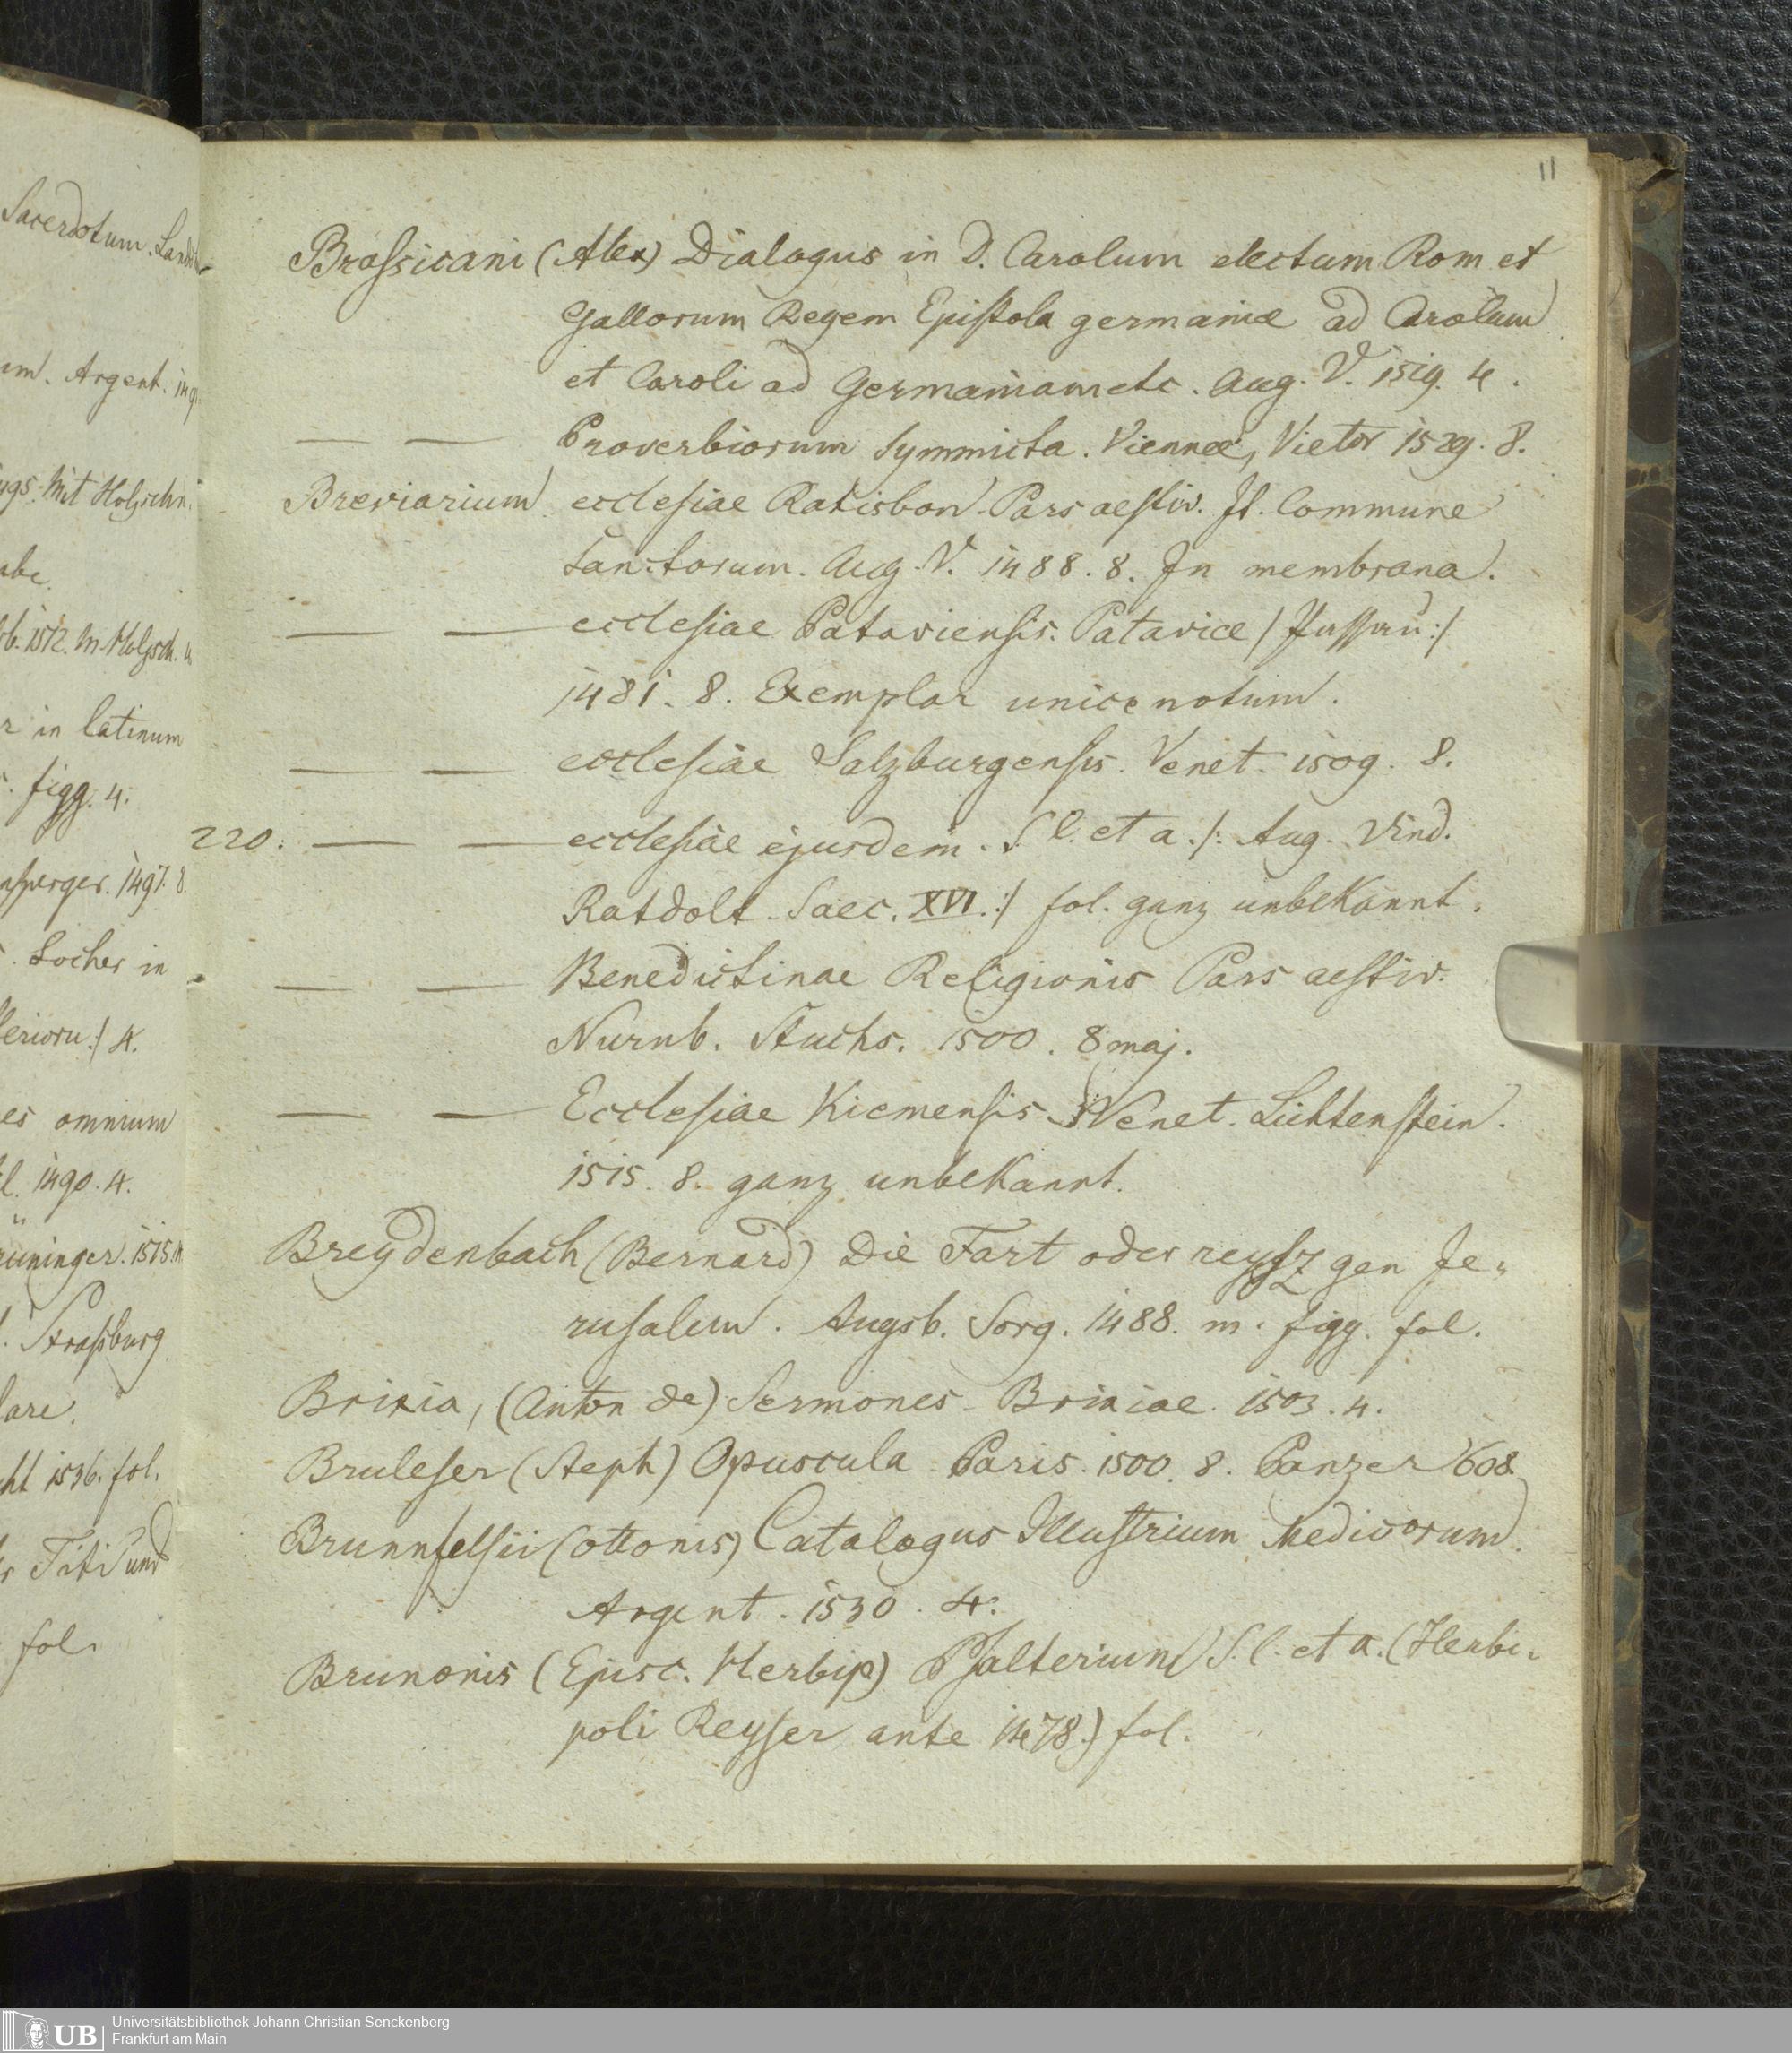 Sacerdotum. Land
Argent.
Mit Holzschn.
in latinum
figg. 4.
1497. 8
Locher in
4.
es omnium
1490. 4.
uninger. 1515.
Straßburg
1536. fol.
Titi und
fol.
11
Brassicani (Alex) Dialogus in D. Carolum electum Rom et
Gallorum Regem Epistola germaniæ ad Carolum
et Caroli ad Germaniam etc. Aug. V. 1519. 4.
— — Proverbiorum Symmicta. Viennæ, Vietor 1529. 8.
Breviarium ecclesiae Ratisbon. Pars aestiv. It. Commune
Sanctorum. Aug. V. 1488. 8. In membrana.
— — ecclesiae Pataviensis. Patavice /Passau:/
1481. 8. Exemplar unice notum.
— — ecclesiae Salzburgensis. Venet. 1509. 8.
220: — — ecclesiae ejusdem. S l. et a. /: Aug. Vind.
Ratdolt. Saec. XVI. :/ fol. ganz unbekannt.
— — Benedictinae Religionis Pars aestiv.
Nurnb. Stuchs. 1500. 8 maj.
— — Ecclesiae Kiemensis Venet. Lichtenstein.
1515. 8. ganz unbekannt.
Breydenbach (Bernard) Die Fart oder reysz gen Je„
rusalem. Augsb. Sorg. 1488. m. figg. fol.
Brixia, (Anton de) Sermones. Brixiae. 1503. 4.
Bruleser (Steph) Opuscula Paris. 1500. 8. Panzer 608
Brunnfelsii (Ottonis) Catalogus Illustrium Medicorum.
Argent. 1530. 4.
Brunonis (Episc. Herbip) Psalterium S. l. et a. (Herbi.
poli Reyser ante 1478.) fol.
UB
Universitätsbibliothek Johann Christian Senckenberg
Frankfurt am Main